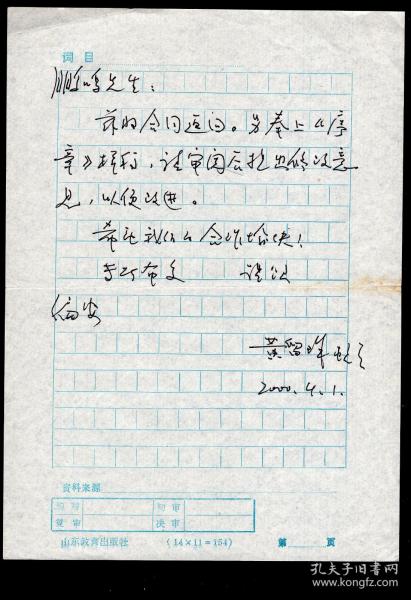 词目
鹏鸣先生：
前的合同退回。另奉上《序
章》样稿，请审阅后提出修改意
见，以便改进。
希望我们合作愉快！
专此布达 谨颂
编安
黄留珠
2000.4.1.
资料来源
编写
初审
复审
决审
山东教育出版社
(14×11=154)
第 页
孔夫子旧书网
www.kongfz.com